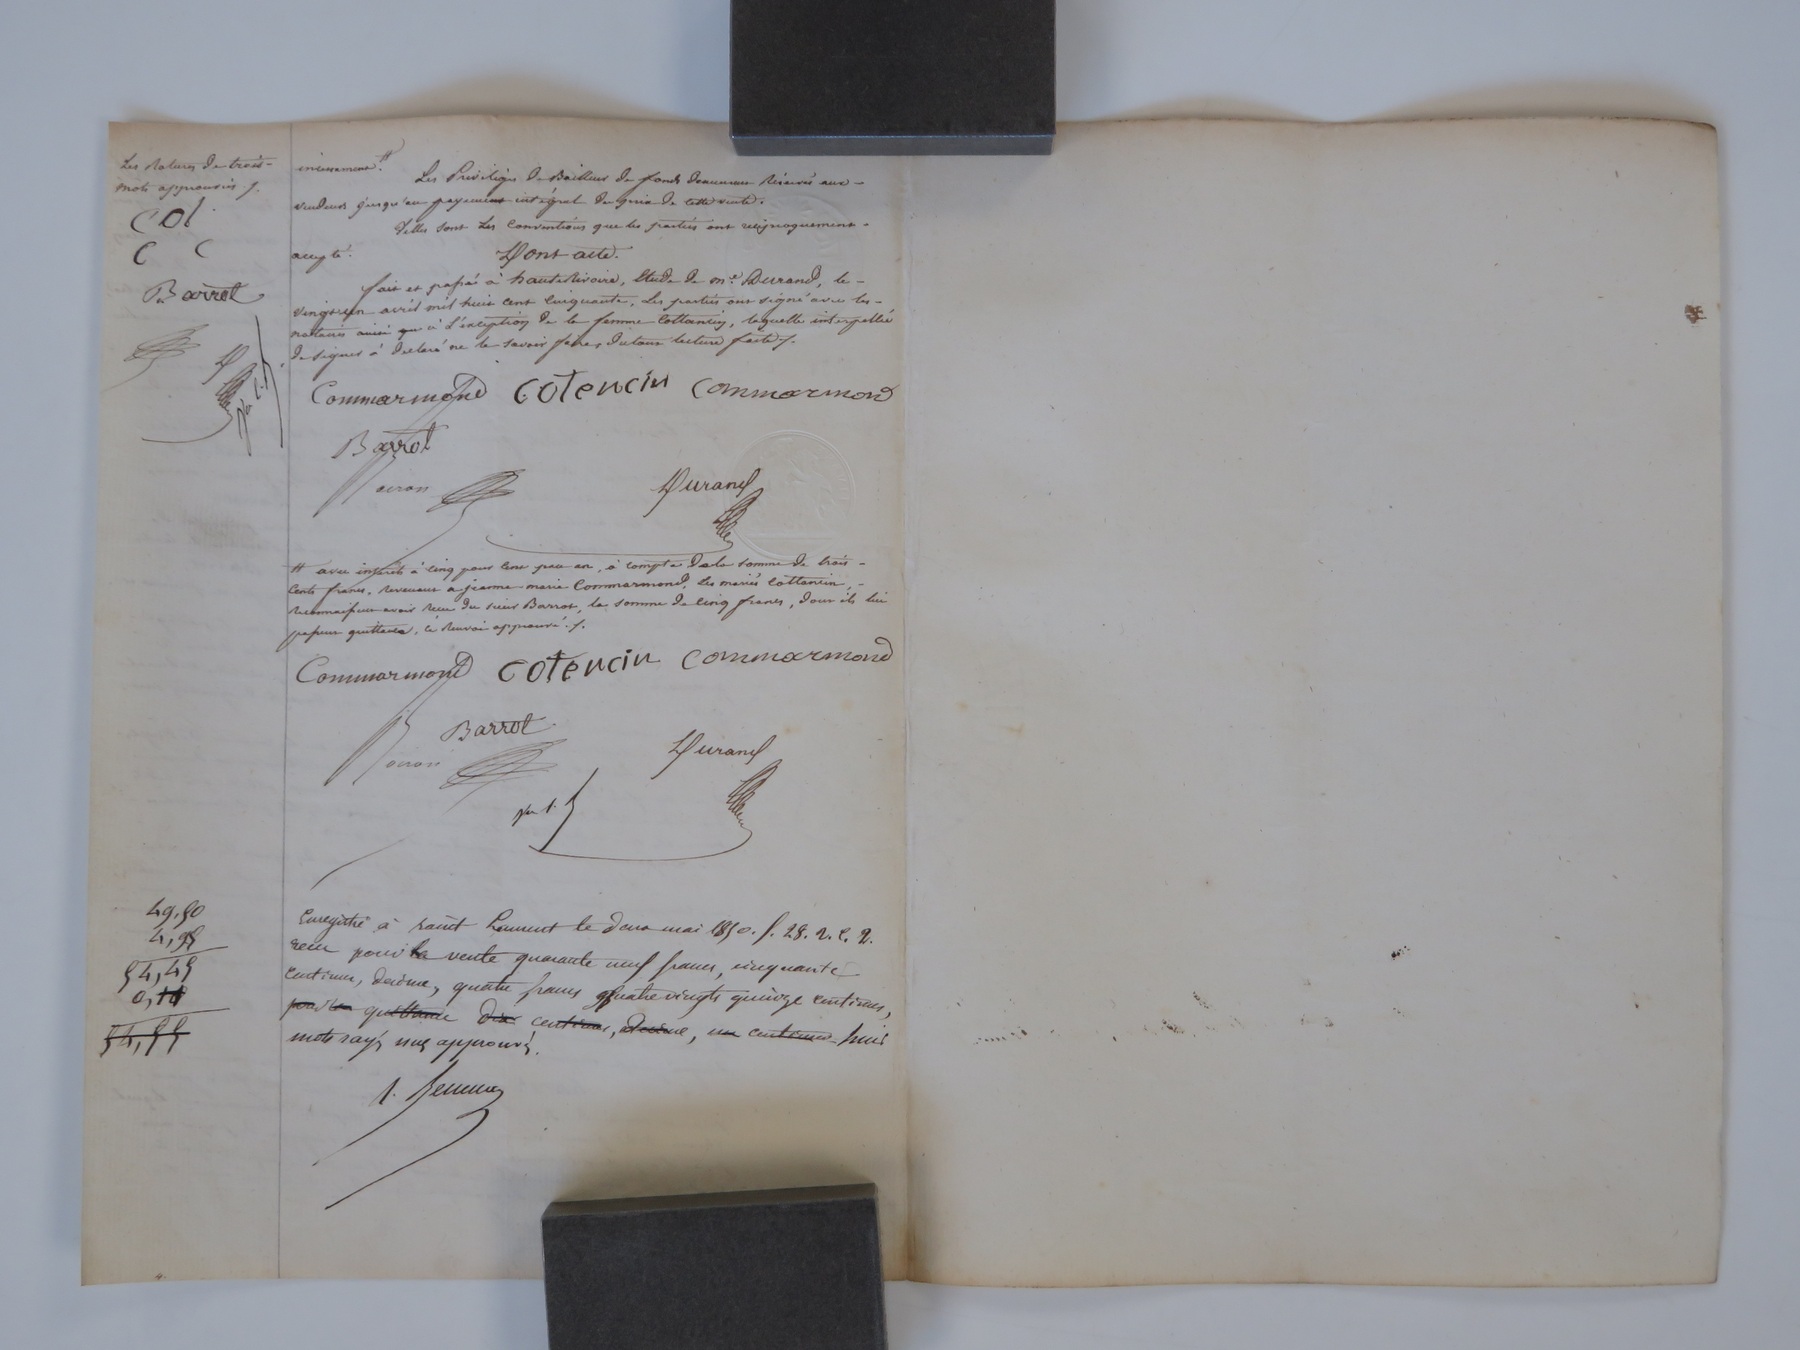 Les Ratures de trois
mots approuvées /.
COt
C C
Barrot
D
incessamment. #
Les Privilèges de Bailleur de fonds demeurent Réservés aux
vendeurs jusqu'au payement intégral du prix de cette vente.
Telles sont Les Conventions que les parties ont réciproquement
accepté.
Dont acte.
fait et passé à hauteRivoire, Etude de me Durand, le
vingt un avril mil huit cent cinquante, Les parties ont signé avec les
notaires à L'exception de la femme Cottancin, laquelle interpellée
de signer à déclaré ne le savoir faire, du tout lecture faite /.
Commarmond coTencin commarmond
Barrot
Durand
# avec intérêts à cinq pour cent par an, à compte de la somme de trois
cents francs, Revenant à jeanne marie Commarmond, Les mariés Cottancin,
Reconnaissent avoir Reçu du sieur Barrot, la somme de cinq francs, dont ils lui
passent quittance, le Renvoi approuvé /.
Commarmond coTencin commarmond
Barrot
Durand
49,50
4,95
54,45
0,11
54,55
Enregistré à saint Laurent le deux mai 1850. f. 28. v. c. 2.
reçu pour la vente quarante neuf francs, cinquante
centimes, décime, quatre francs quatre vingts quinze centimes,
pour la quittance dix centimes, décime, un centime huit
mots rayés nuls approuvés.